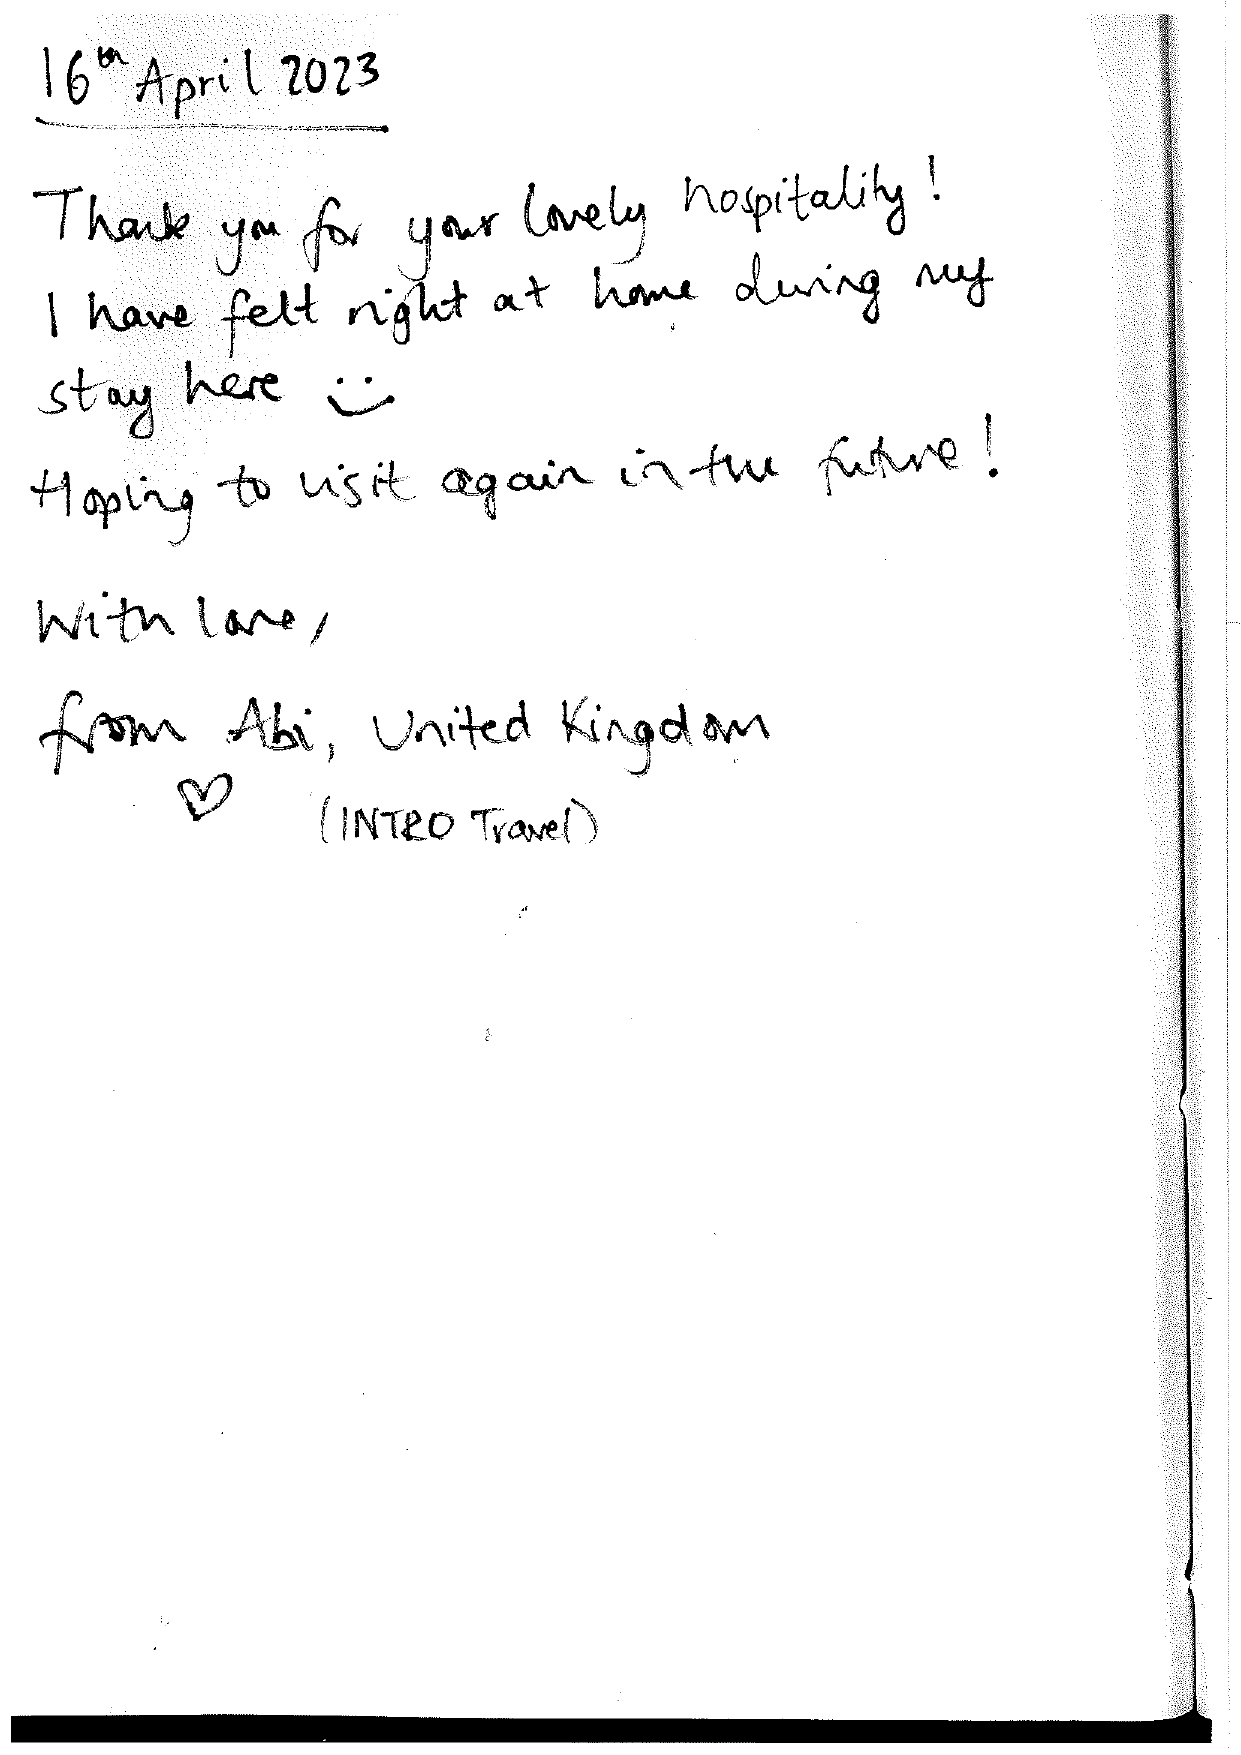 16th April 2023
Thank you for your lovely hospitality!
I have felt right at home during my
stay here :)
Hoping to visit again in the future!
With love,
from Abi, United Kingdom
♡ (INTRO Travel)